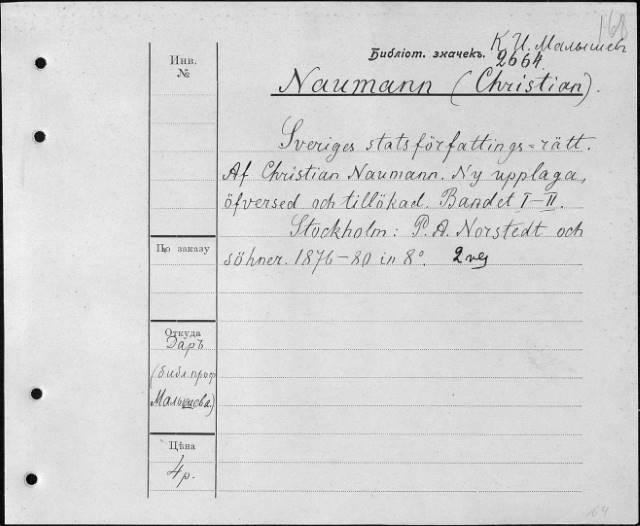 168
К. И. Малышев
Библіот. значекъ. 2664.
Naumann (Christian).
Инв.
№
Sveriges statsförfattings-rätt.
Af Christian Naumann. Ny upplaga,
öfversed och tillökad. Bandet I-II.
Stockholm: P. A. Norstedt och
söhner. 1876-80 in 8°.
По заказу
Откуда
Даръ
(библ. проф
Малышева)
Цѣна
4 р.
64